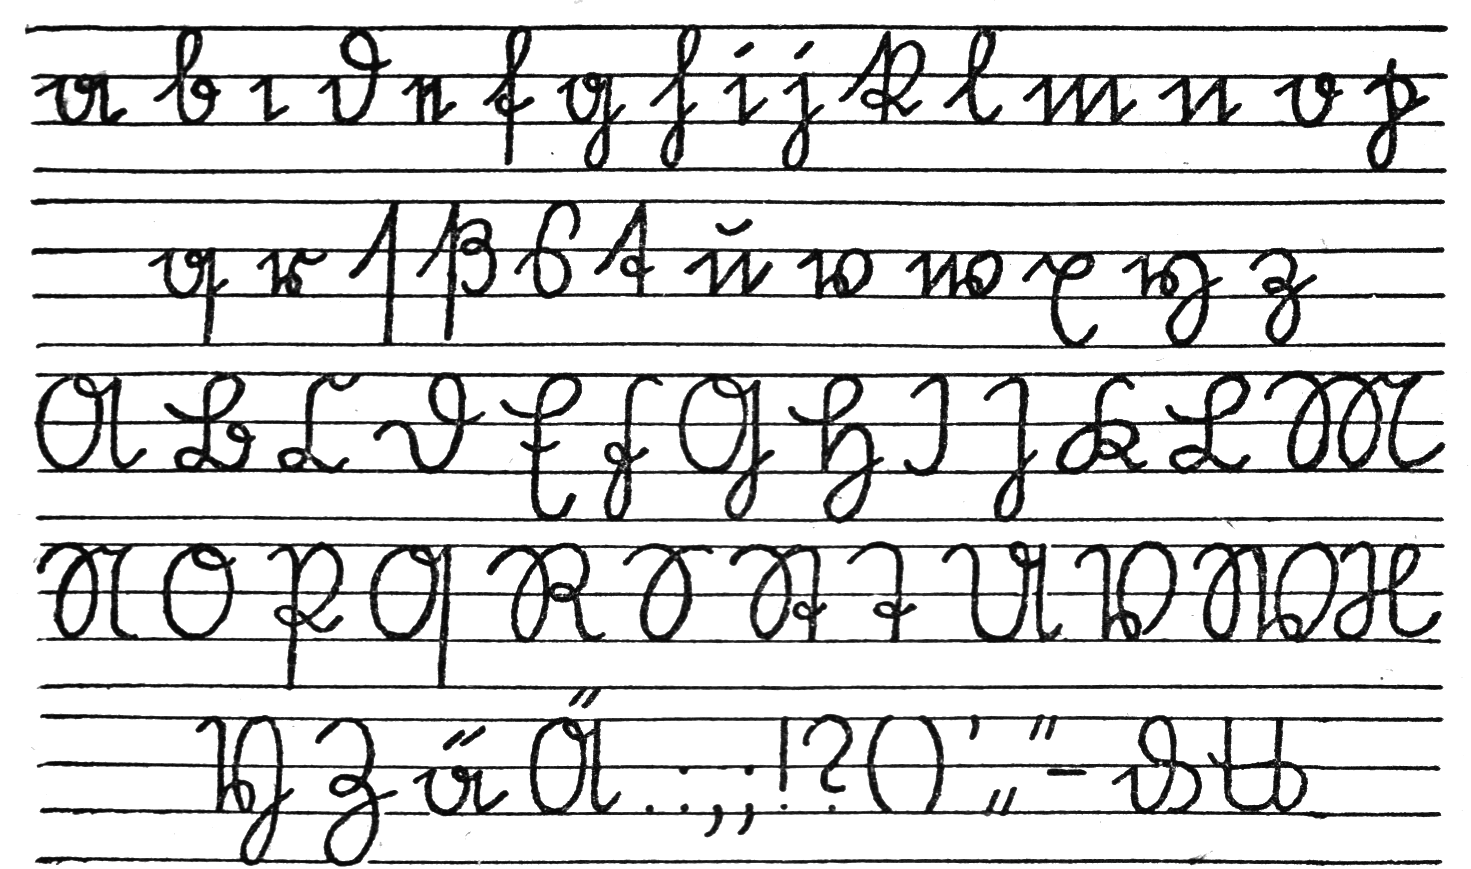 a b c d e f g h i j k l m n o p
q r ſ ß s t u v w x y z
A B C D E F G H I J K L M
N O P Q R S St T U V W X
Y Z ä Ä . : , ; ! ? ( ) ' „ “ -